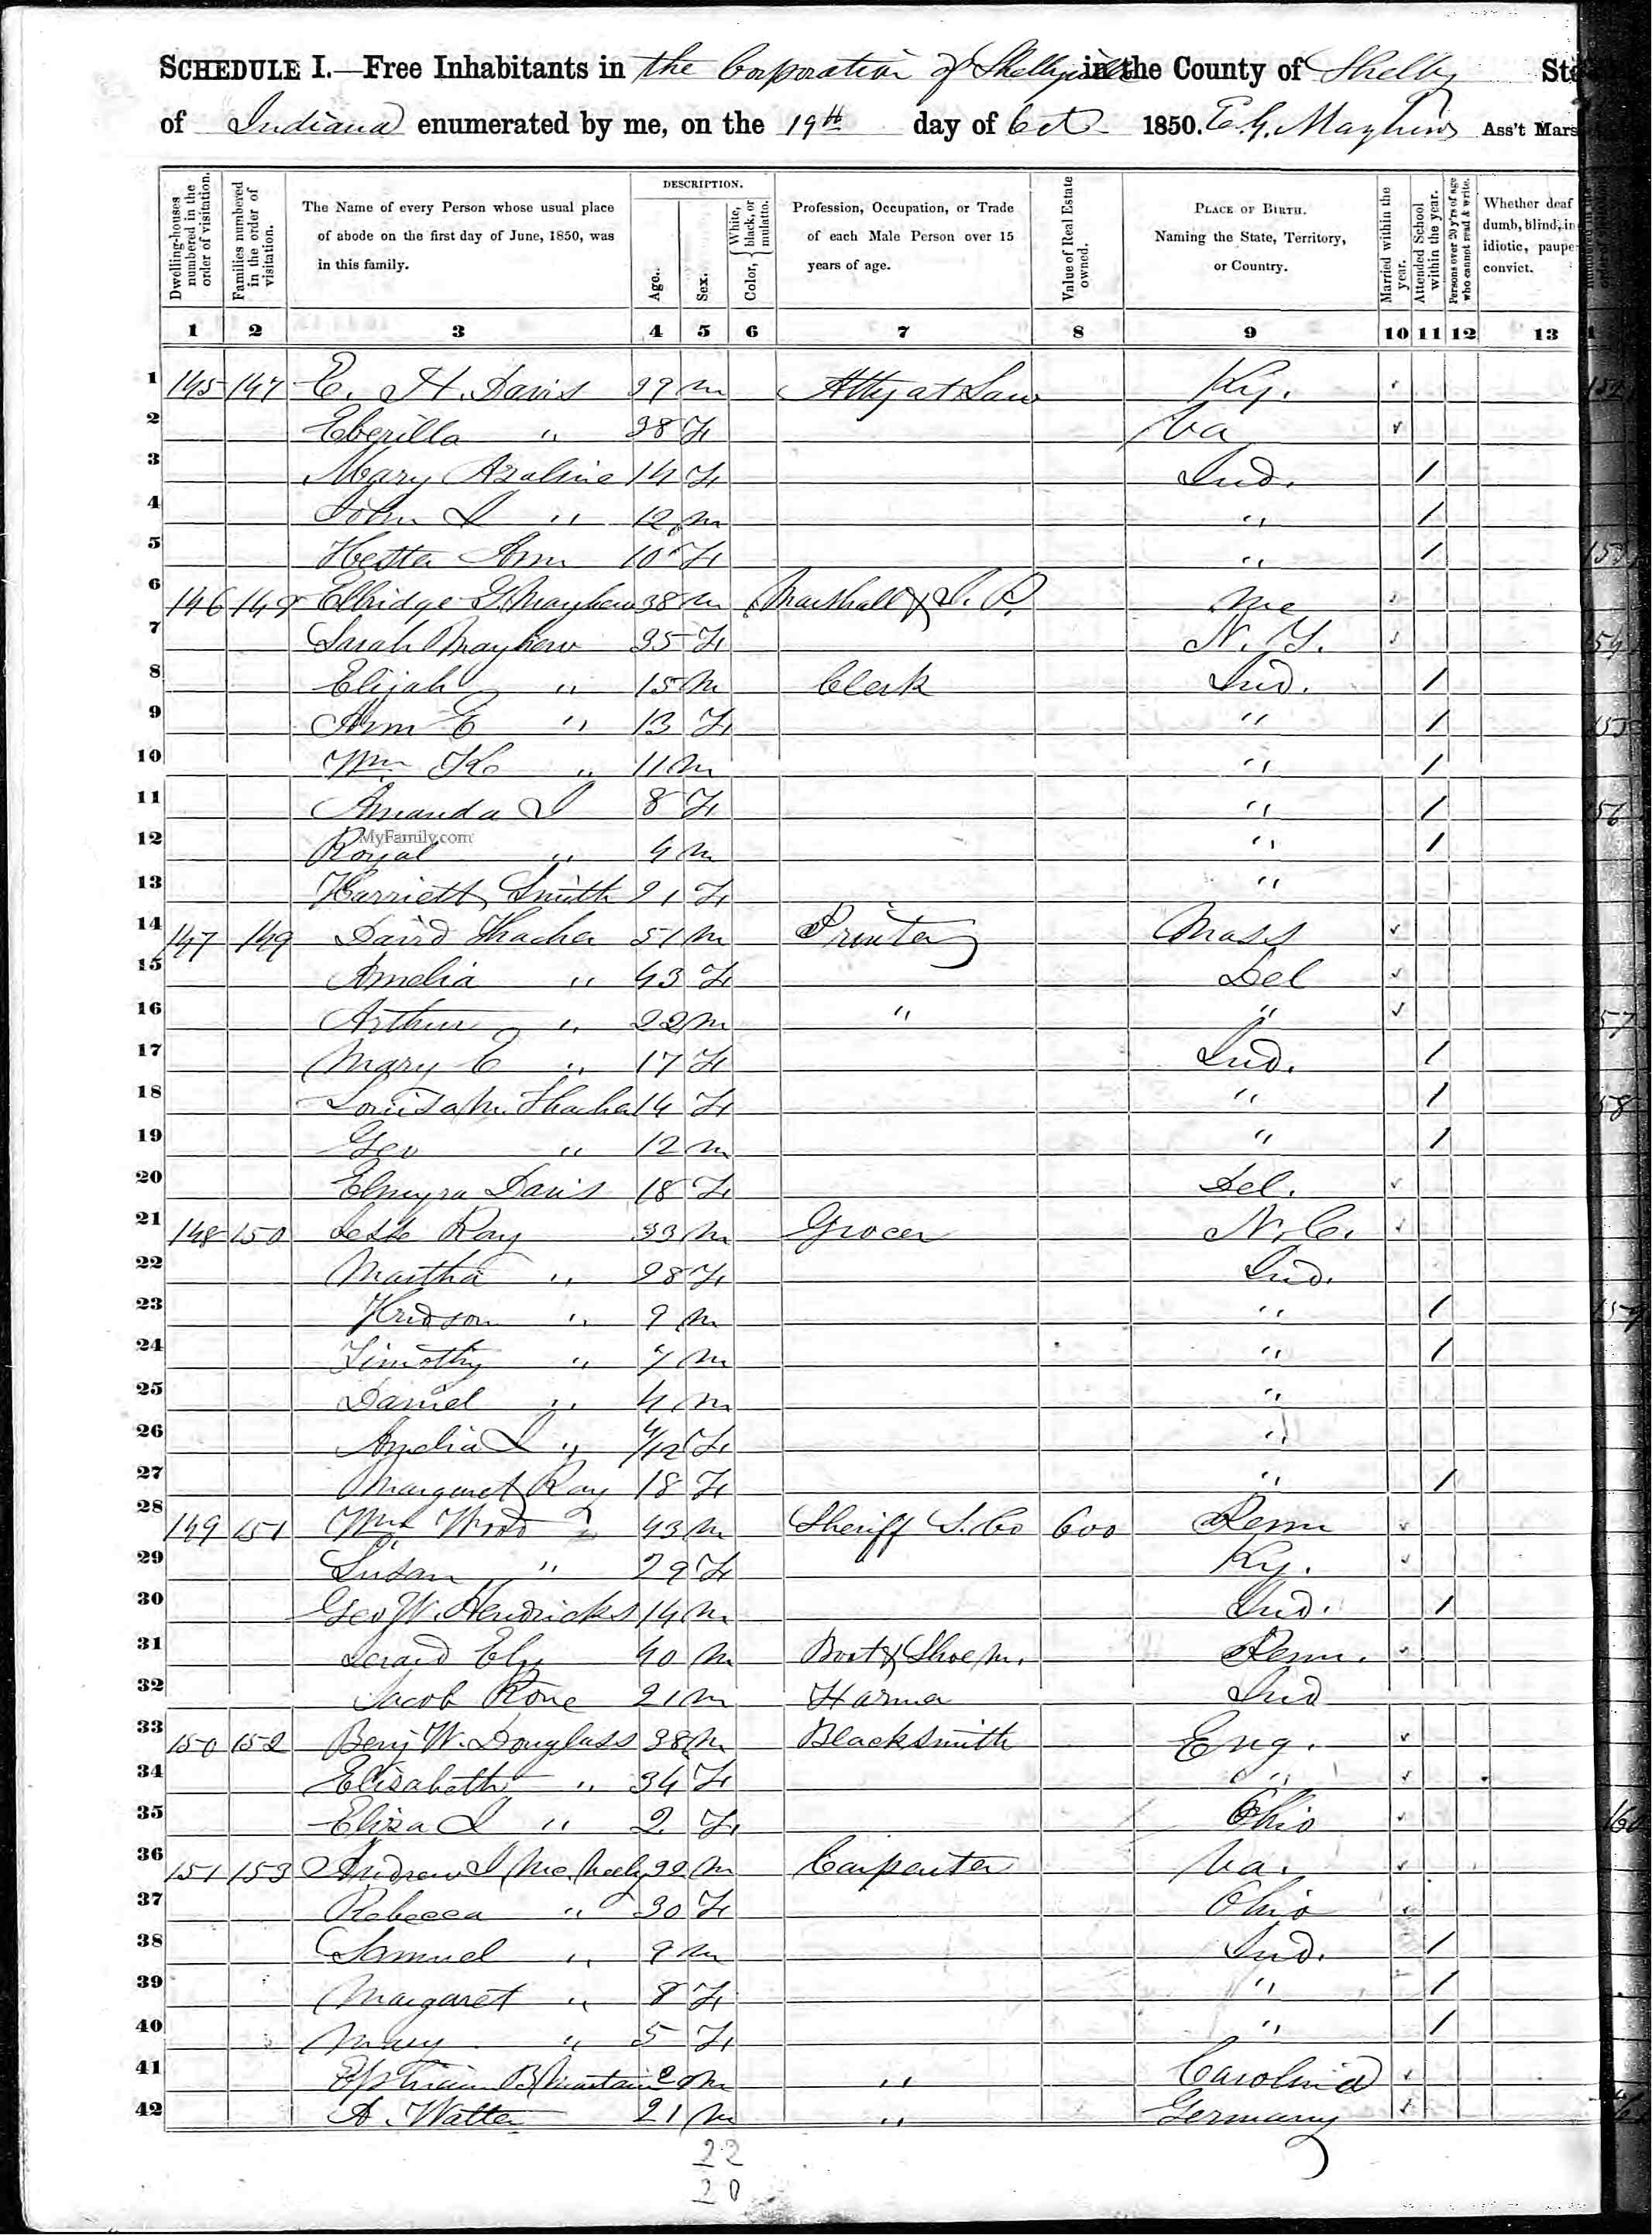 SCHEDULE I.—Free Inhabitants in the Corporation of Shelbyville in the County of Shelby
of Indiana enumerated by me, on the 19th day of Oct. 1850. E. G. Mayhew Ass't Mars
Dwelling-houses numbered in the order of visitation.
Families numbered in the order of visitation.
The Name of every Person whose usual place of abode on the first day of June, 1850, was in this family.
DESCRIPTION.
Age.
Sex.
Color, { White, black, or mulatto.
Profession, Occupation, or Trade of each Male Person over 15 years of age.
Value of Real Estate owned.
PLACE OF BIRTH. Naming the State, Territory, or Country.
Married within the year.
Attended School within the year.
Persons over 20 y'rs of age who cannot read & write.
Whether deaf dumb, blind, in idiotic, paupe convict.
1 2 3 4 5 6 7 8 9 10 11 12 13
1 145 147 E. H. Davis m Atty at Law Ky.
2 Eberilla " F Va
3 Mary Azaline 14 F Ind. /
4 John " 12 m " /
5 Hester Ann 10 F " /
6 146 148 Elbridge G. Mayhew 38 m Marshall & J. P. Me
7 Sarah Mayhew 35 F N. Y.
8 Elijah " 15 m Clerk Ind. /
9 Ann E " 13 F " /
10 Wm " 11 m " /
11 Amanda J 8 F " /
12 Royal " 4 m " /
MyFamily.com
13 Harriett Smith 21 F "
14 147 149 David Thacher 51 m Printer Mass
15 Amelia " 43 F Del
16 Arthur " 22 m " "
17 Mary E " 17 F Ind. /
18 Louisa M. Thacher 14 F " /
19 Geo " 12 m " /
20 Elmyra Davis 18 F Del.
21 148 150 Ray 33 m Grocer N. C.
22 Martha " 28 F Ind.
23 Hudson " 9 m " /
24 Timothy " 7 m " /
25 Daniel " 4 m "
26 Amelia J " /12 F "
27 Margaret Ray 18 F " /
28 149 151 Wm 43 m Sheriff S. Co 600 Penn
29 Susan " 29 F Ky.
30 Geo W. Hendricks 14 m Ind. /
31 40 m Boot & Shoe M. Penn.
32 Jacob Rone 21 m Farmer Ind
33 150 152 Benj W. Douglass 38 m Blacksmith Eng.
34 Elisabeth " 34 F "
35 Eliza J " 2 F Ohio
36 151 153 Andrew J McNeely 32 m Carpenter Va.
37 Rebecca " 30 F Ohio
38 Samuel " 9 m Ind. /
39 Margaret " 8 F " /
40 Mary " 5 F " /
41 Ephriam m " Carolina
42 A. Walter 21 m " Germany
22
20